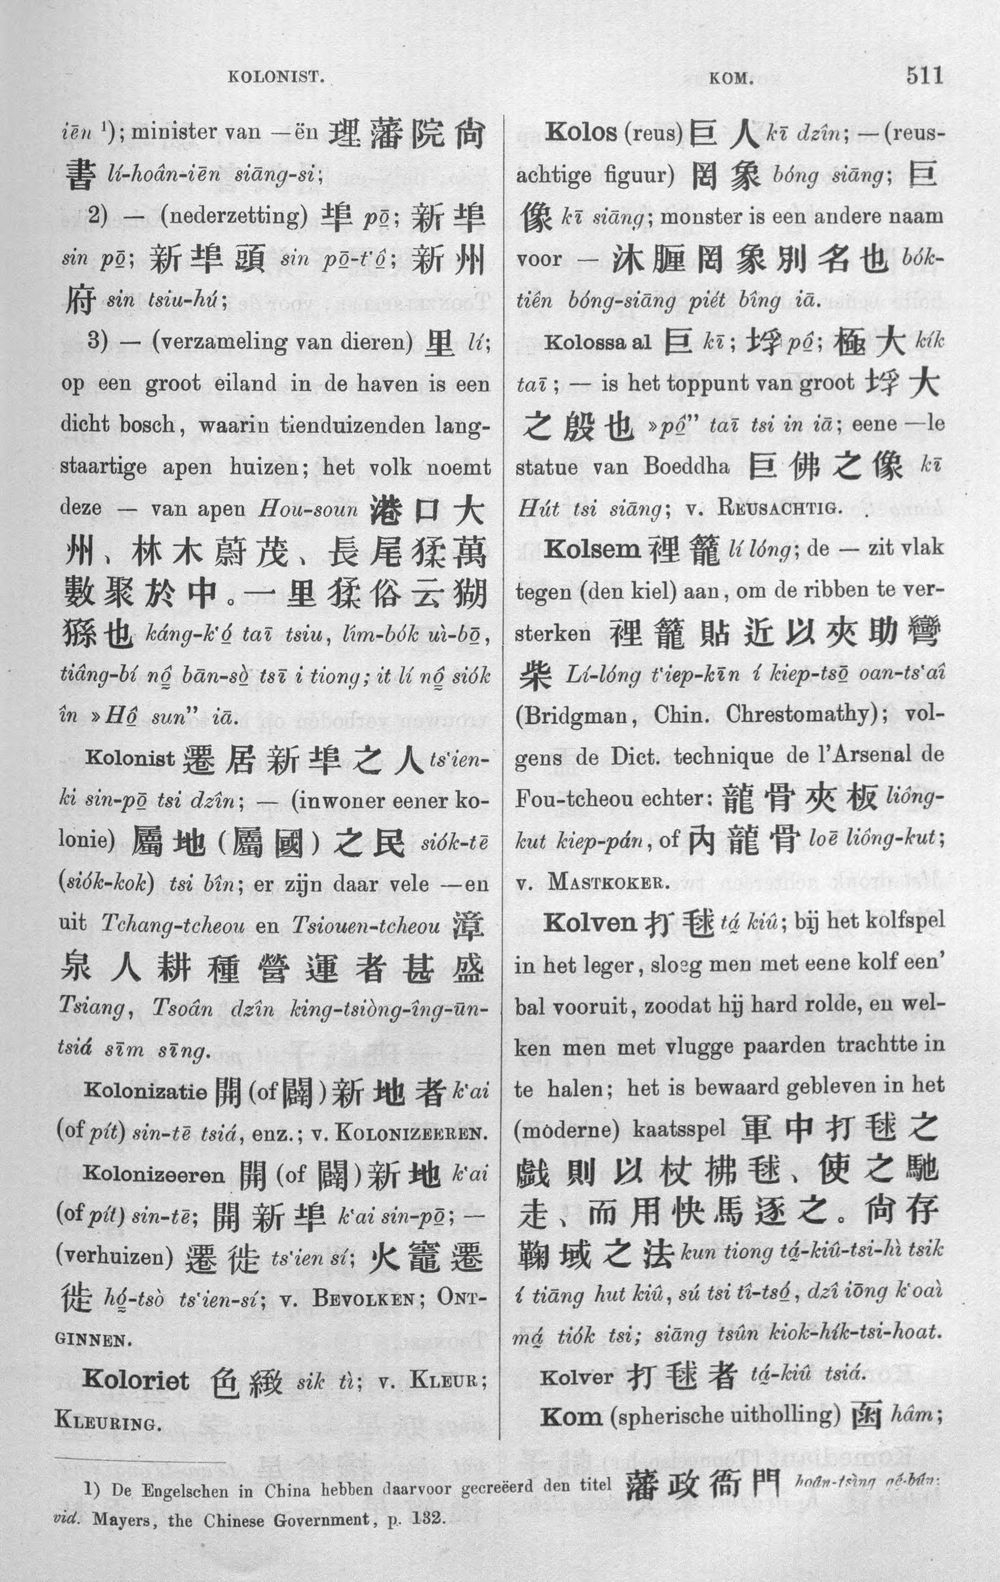 KOLONIST.
KOM.
511
iēn ¹); minister van —ën 理藩院尙
書 lí-hoân-iēn siāng-si;
2) — (nederzetting) 埠 pō; 新埠
sin pō; 新埠頭 sin pō-t‘ô; 新州
府 sin tsiu-hú;
3) — (verzameling van dieren) 里 lí;
op een groot eiland in de haven is een
dicht bosch, waarin tienduizenden lang-
staartige apen huizen; het volk noemt
deze — van apen Hou-soun 港口大
州、林木蔚茂、長尾猱萬
數聚於中。一里猱俗云猢
猻也 káng-k‘ó taī tsiu, lîm-bók uì-bō,
tiâng-bí nô bān-sò tsī i tiong; it lí nô siók
în »Hô sun” iā.
Kolonist 遷居新埠之人 ts‘ien-
ki sin-pō tsi dzîn; — (inwoner eener ko-
lonie) 屬地(屬國)之民 siók-tē
(siók-kok) tsi bîn; er zijn daar vele —en
uit Tchang-tcheou en Tsiouen-tcheou 漳
泉人耕種營運者甚盛
Tsiang, Tsoân dzîn king-tsiòng-îng-ūn-
tsiá sīm sīng.
Kolonizatie 開(of 闢)新地者 k‘ai
(of pít) sin-tē tsiá, enz.; v. KOLONIZEEREN.
Kolonizeeren 開 (of 闢)新地 k‘ai
(of pít) sin-tē; 開新埠 k‘ai sin-pō; —
(verhuizen) 遷徙 ts‘ien sí; 火竈遷
徙 hó-tsò ts‘ien-sí; v. BEVOLKEN; ONT-
GINNEN.
Koloriet 色緻 sik tì; v. KLEUR;
KLEURING.
Kolos (reus) 巨人 kī dzîn; — (reus-
achtige figuur) 罔象 bóng siāng; 巨
像 kī siāng; monster is een andere naam
voor — 沐腫罔象別名也 bók-
tiên bóng-siāng piét bîng iā.
Kolossaal 巨 kī; 垺 pô; 極大 kík
taī; — is het toppunt van groot 垺大
之殷也 »pô” taī tsi in iā; eene —le
statue van Boeddha 巨佛之像 kī
Hút tsi siāng; v. REUSACHTIG.
Kolsem 裡籠 lí lóng; de — zit vlak
tegen (den kiel) aan, om de ribben te ver-
sterken 裡籠貼近以夾助彎
柴 Lí-lóng t‘iep-kīn í kiep-tsō oan-ts‘aî
(Bridgman, Chin. Chrestomathy); vol-
gens de Dict. technique de l’Arsenal de
Fou-tcheou echter: 龍骨夾板 liông-
kut kiep-pán, of 內龍骨 loē liông-kut;
v. MASTKOKER.
Kolven 打毬 tá kiû; bij het kolfspel
in het leger, sloeg men met eene kolf een’
bal vooruit, zoodat hij hard rolde, en wel-
ken men met vlugge paarden trachtte in
te halen; het is bewaard gebleven in het
(moderne) kaatsspel 軍中打毬之
戲則以杖拂毬、使之馳
走、而用快馬逐之。尙存
鞠域之法 kun tiong tá-kiû-tsi-hì tsik
í tiāng hut kiû, sú tsi tî-tsó, dzî iōng k‘oaì
má tiók tsi; siāng tsûn kiok-hík-tsi-hoat.
Kolver 打毬者 tá-kiû tsiá.
Kom (spherische uitholling) 函 hâm;
1) De Engelschen in China hebben daarvoor gecreëerd den titel 藩政衙門 hoân-tsìng gê-bûn:
vid. Mayers, the Chinese Government, p. 132.